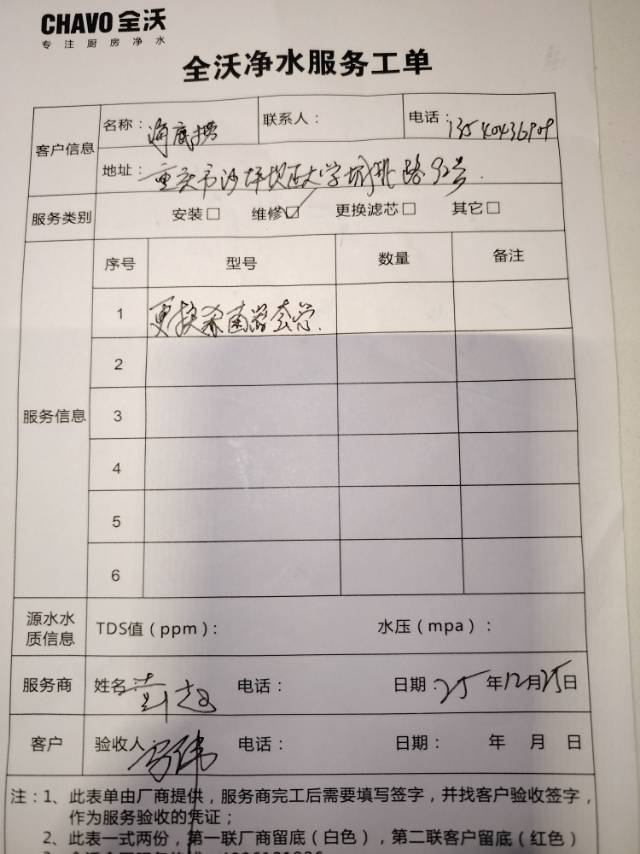 CHAVO 全沃
专注厨房净水
全沃净水服务工单
客户信息
名称：海底捞
联系人：
电话：13540436909
地址：重庆市沙坪坝区大学城北路92号
服务类别
安装□ 维修☑ 更换滤芯□ 其它□
服务信息
序号 型号 数量 备注
1 更换杀菌器套管
2
3
4
5
6
源水水质信息
TDS值（ppm）： 水压（mpa）：
服务商 姓名 电话： 日期：25年12月25日
客户 验收人 电话： 日期： 年 月 日
注：1、此表单由厂商提供，服务商完工后需要填写签字，并找客户验收签字，
作为服务验收的凭证；
2、此表一式两份，第一联厂商留底（白色），第二联客户留底（红色）